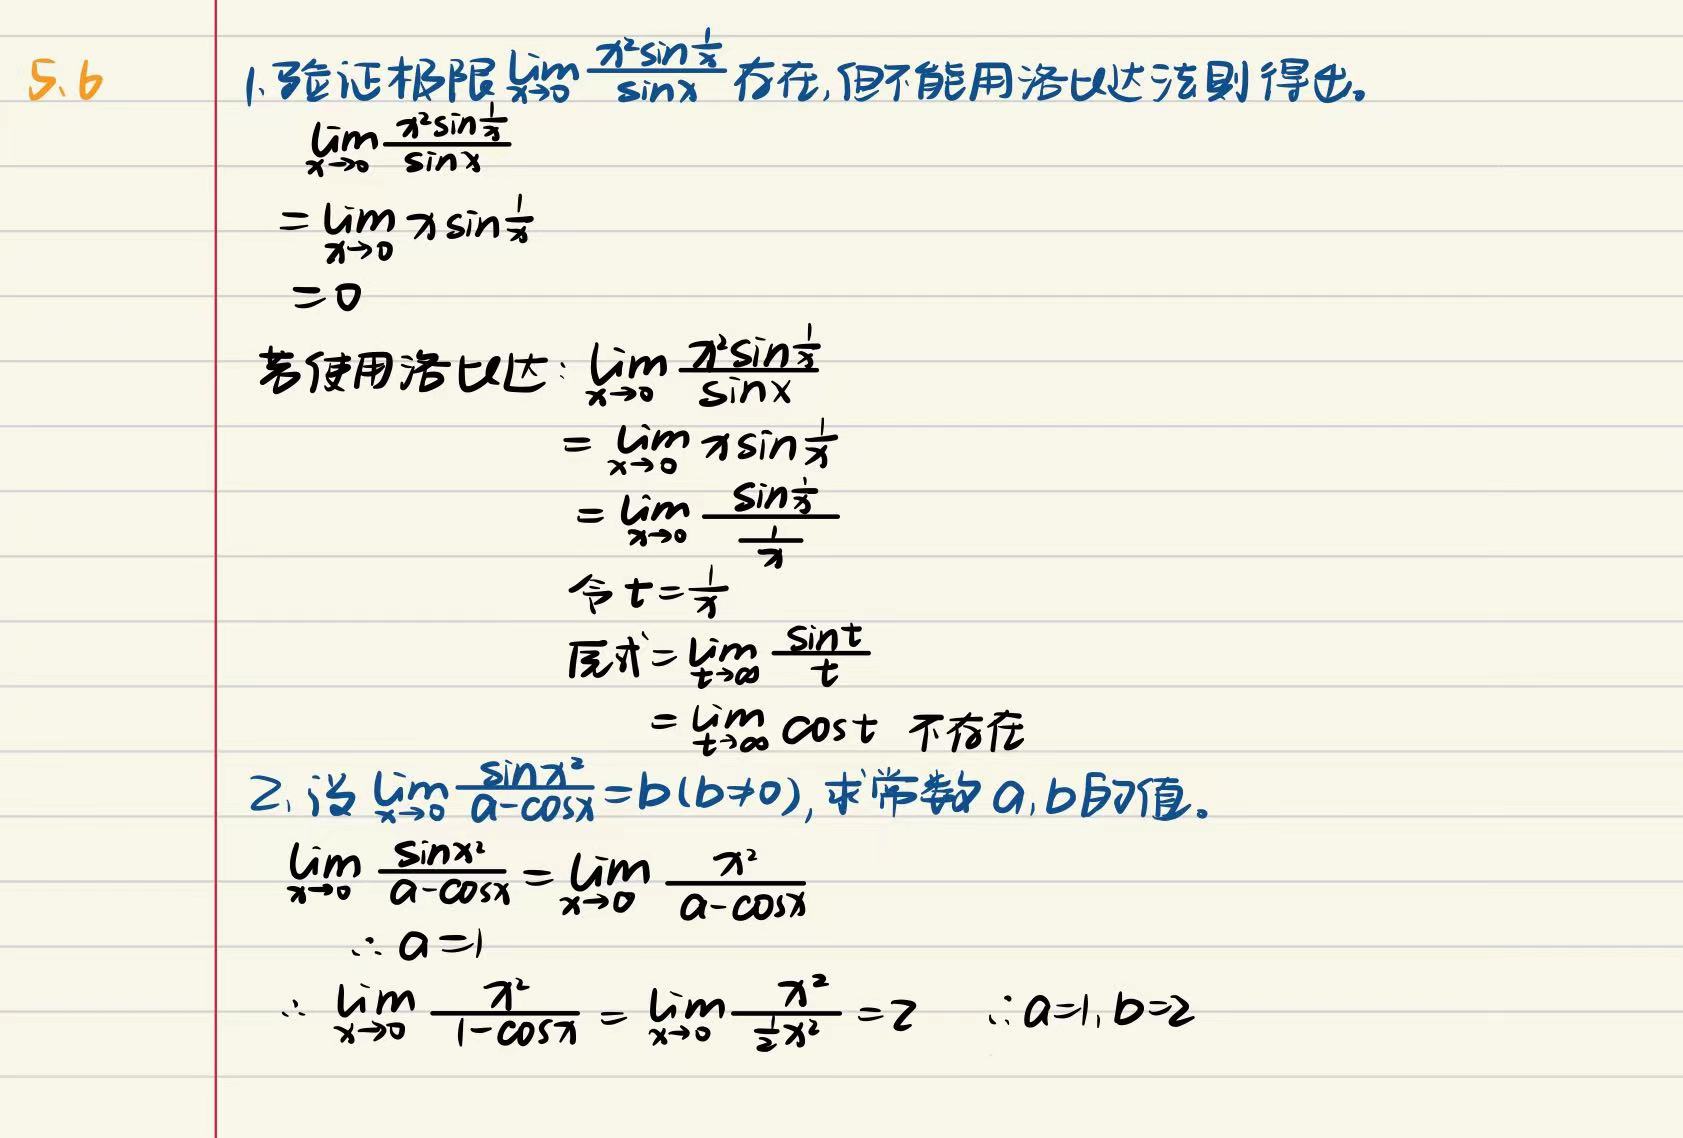 5.6
1.验证极限 lim x→0 x²sin 1/x / sinx 存在,但不能用洛比达法则得出。
lim x→0 x²sin 1/x / sinx
= lim x→0 x sin 1/x
= 0
若使用洛比达: lim x→0 x²sin 1/x / sinx
= lim x→0 x sin 1/x
= lim x→0 sin 1/x / 1/x
令 t = 1/x
原式 = lim t→∞ sint / t
= lim t→∞ cost 不存在
2.设 lim x→0 sinx² / a-cosx = b(b≠0),求常数a,b的值。
lim x→0 sinx² / a-cosx = lim x→0 x² / a-cosx
∴ a=1
∴ lim x→0 x² / 1-cosx = lim x→0 x² / ½x² = 2 ∴a=1,b=2